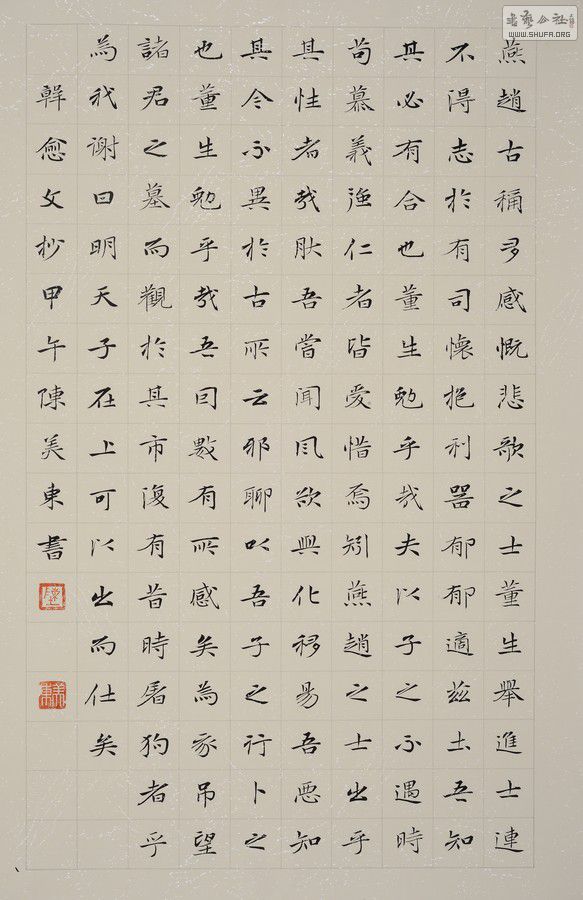 書藝公社
WWW.SHUFA.ORG
燕趙古稱多感慨悲歌之士董生舉進士連
不得志於有司懷抱利器郁郁適茲土吾知
其必有合也董生勉乎哉夫以子之不遇時
苟慕義彊仁者皆愛惜焉矧燕趙之士出乎
其性者哉肰吾嘗聞風欲與化移易吾惡知
其今不異於古所云邪聊以吾子之行卜之
也董生勉乎哉吾囙數有所感矣為我吊望
諸君之墓而觀於其市復有昔時屠狗者乎
為我謝曰明天子在上可以出而仕矣
韓愈文抄甲午陳美東書
美東